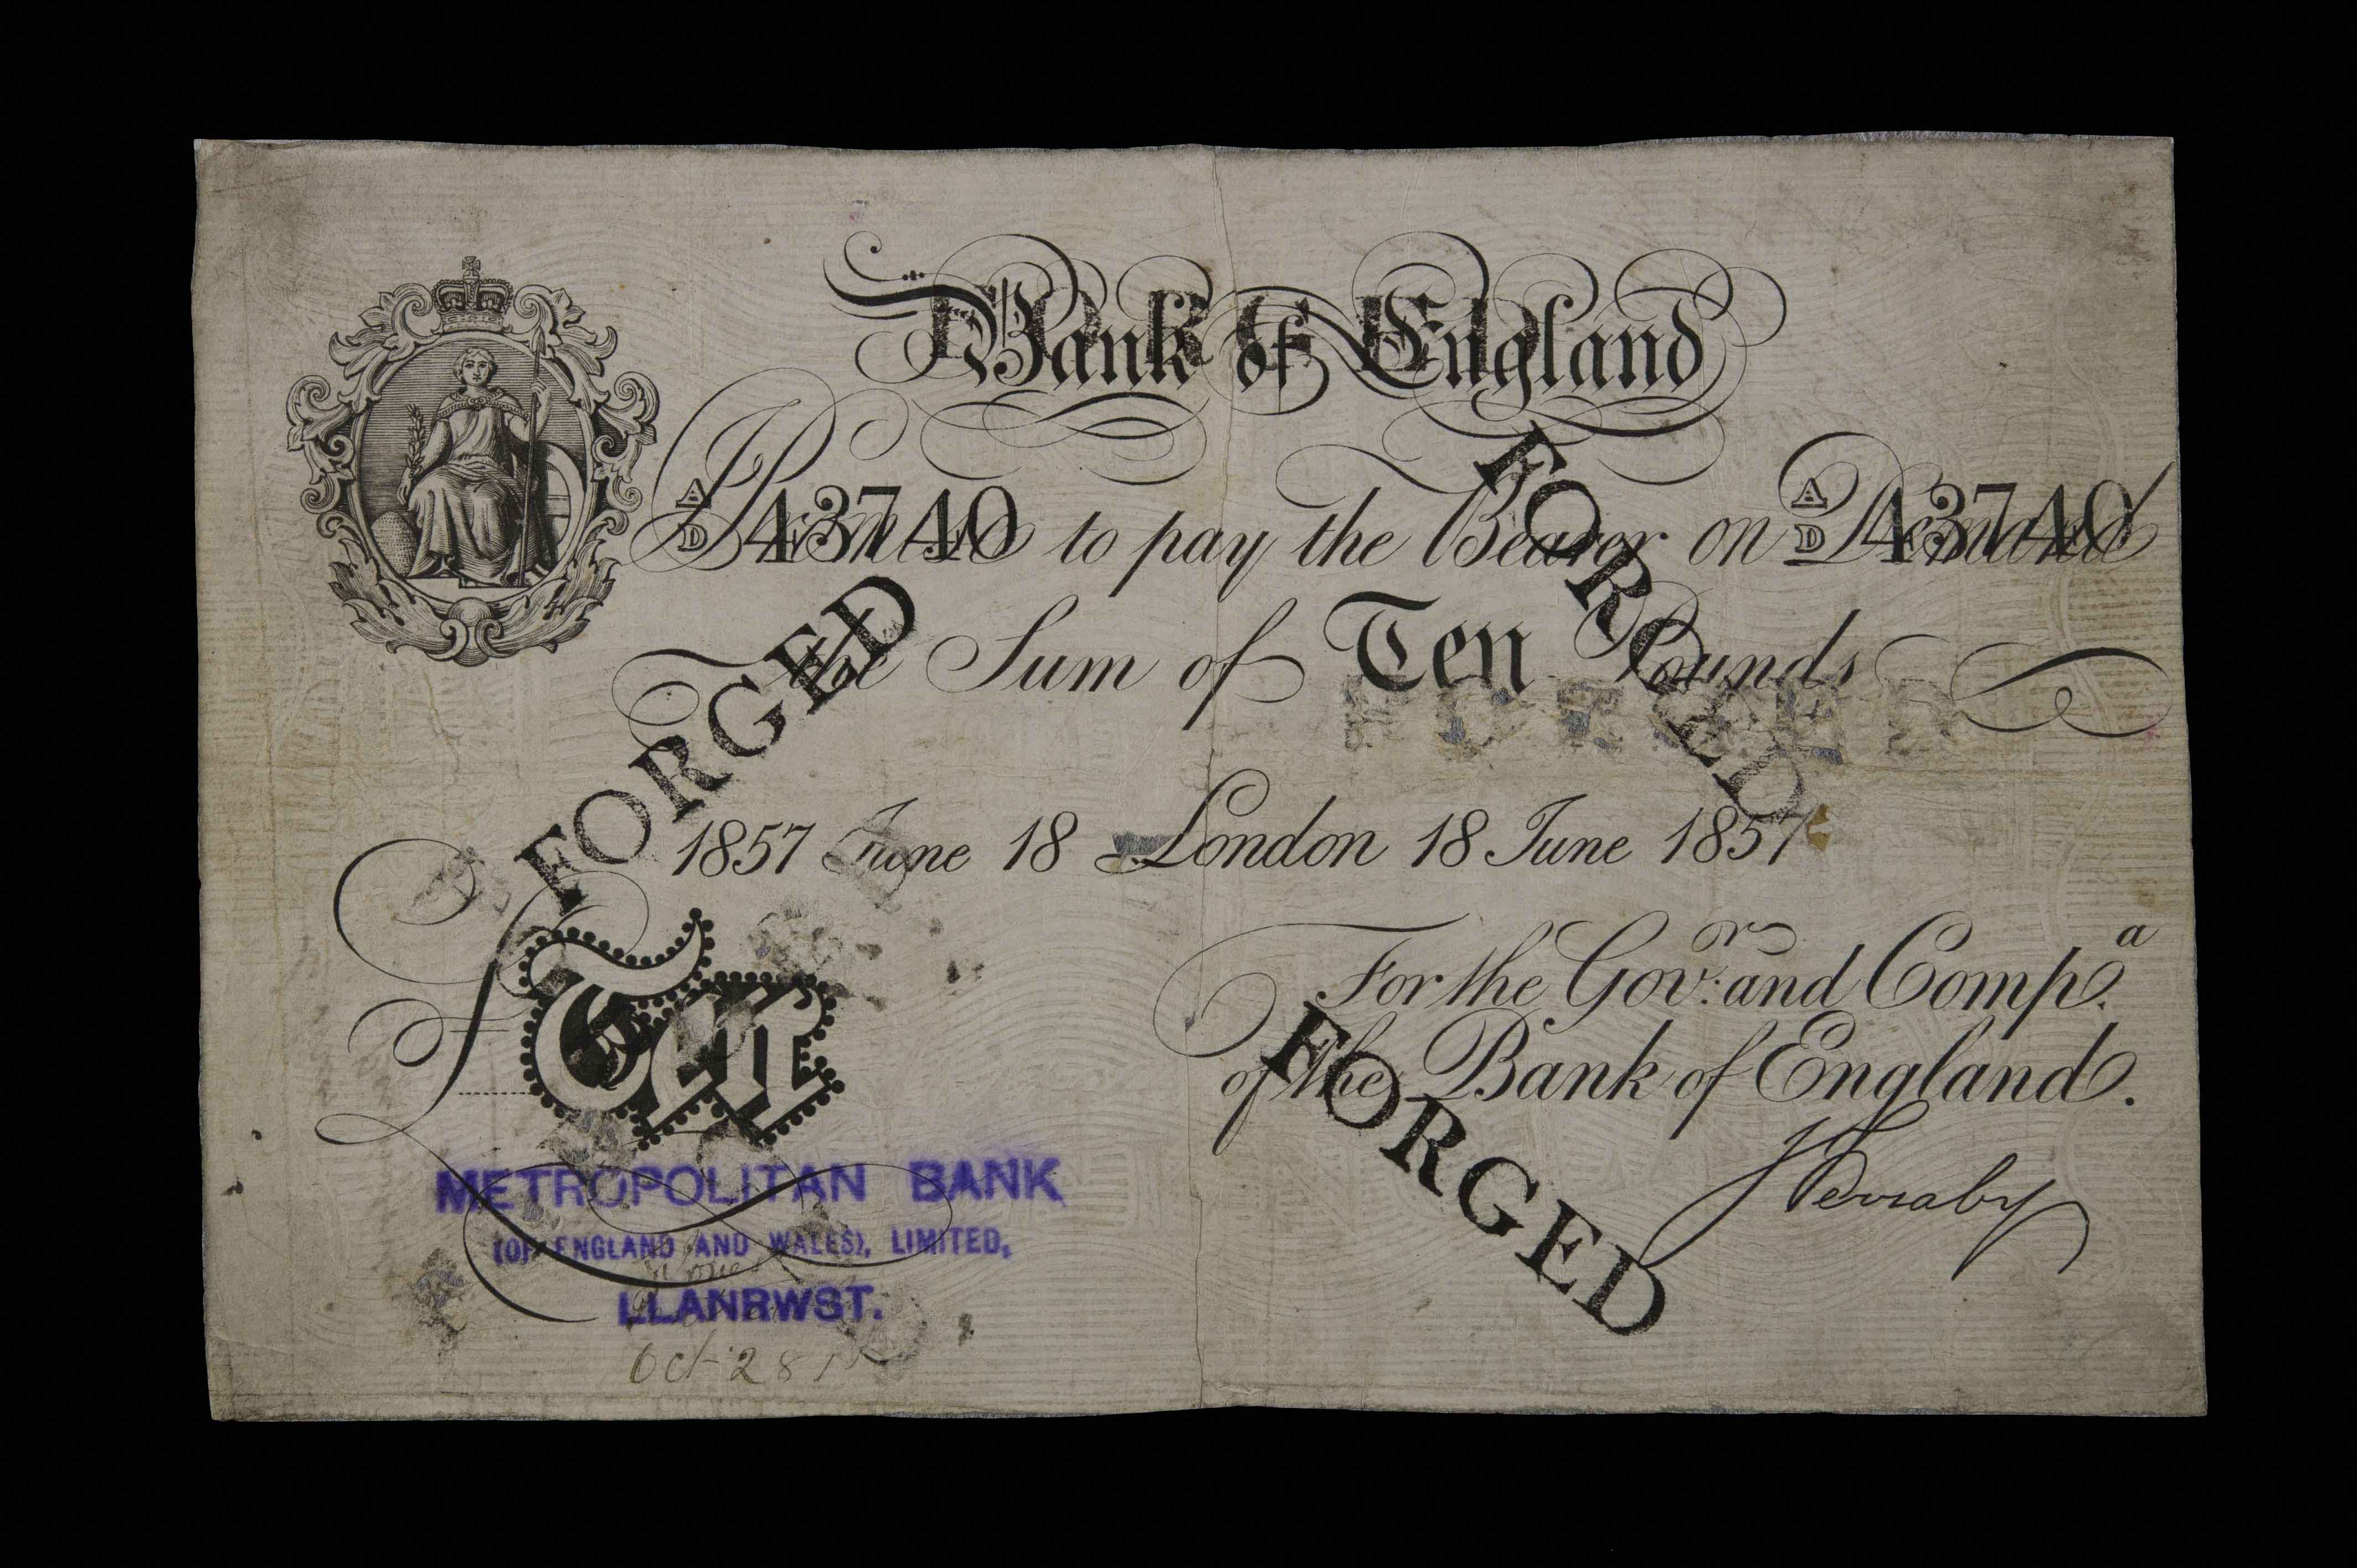 Bank of England
A/D 43740 A/D 43740
I Promise to pay the Bearer on Demand
the Sum of Ten Pounds
FORGED
FORGED
FORGED
1857 June 18 London 18 June 1857
For the Govr: and Compa.
of the Bank of England.
£ Ten
FORGED
METROPOLITAN BANK
(OF ENGLAND AND WALES), LIMITED,
LLANRWST.
Oct 28